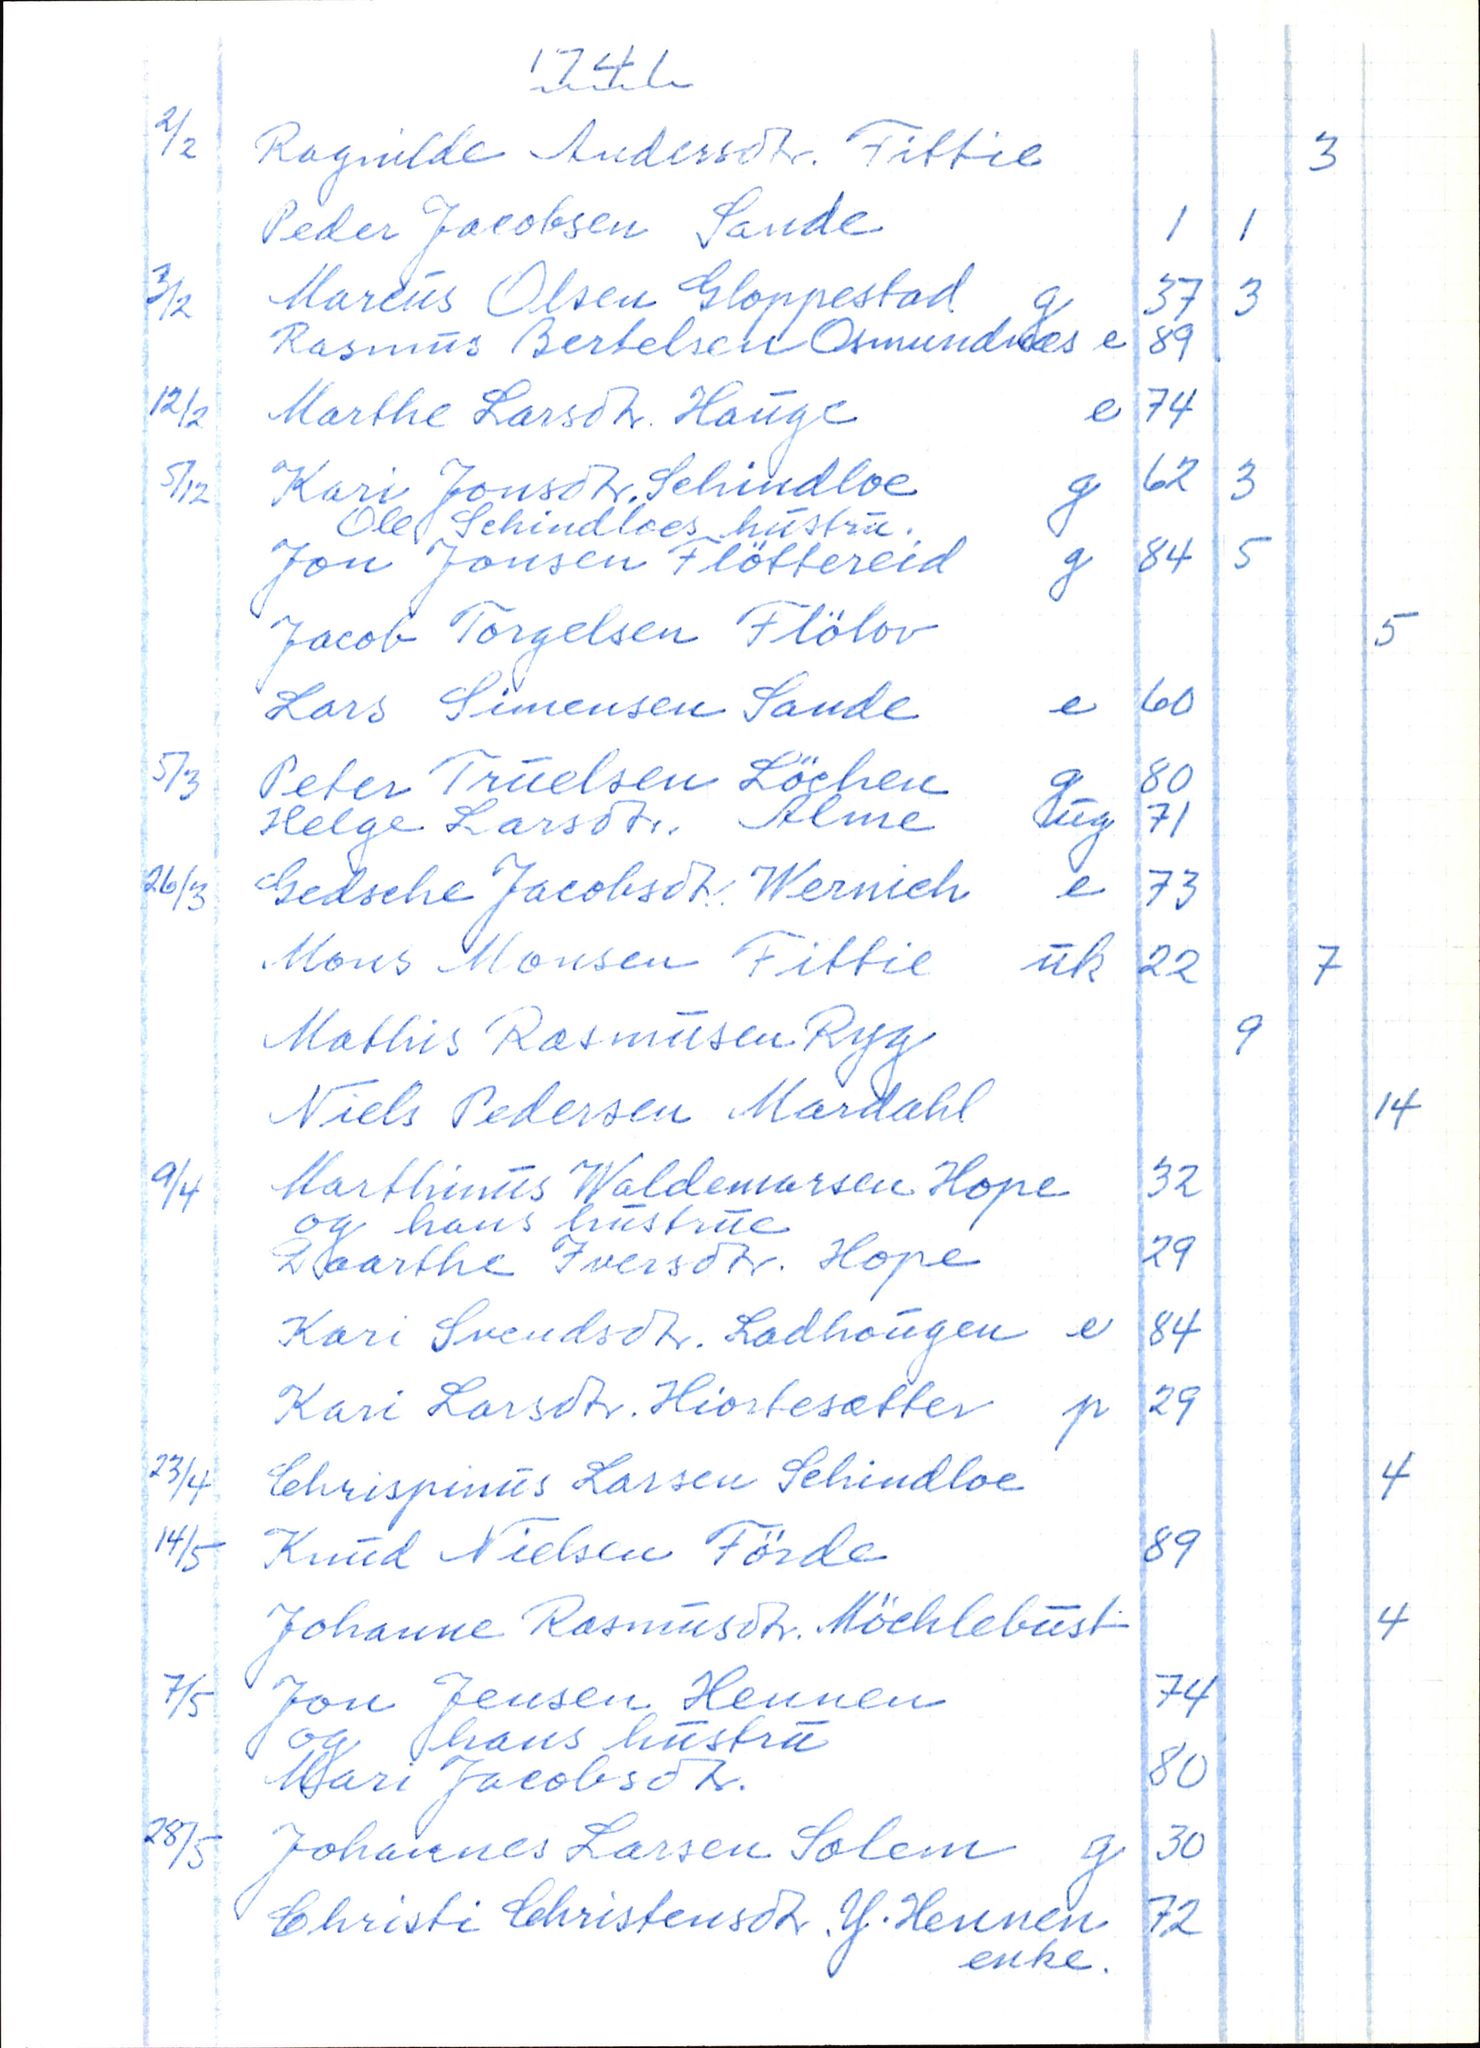 1746
2/2 Ragnilde Andersdtr. Fittie 3
Peder Jacobsen Sande 1 1
3/2 Marcus Olsen Gloppestad g 37 3
Rasmus Bertelsen Osmundnæs e 89
12/2 Marthe Larsdtr. Hauge e 74
5/12 Kari Jonsdtr. Schindloe g 62 3
Ole Schindloes hustru.
Jon Jonsen Flöttereid g 84 5
Jacob Torgelsen Flölov 5
Lars Simensen Sande e 60
5/3 Peter Truelsen Löchen g 80
Helge Larsdtr. Alme ug 71
26/3 Gedsche Jacobsdtr. Wernich e 73
Mons Monsen Fittie uk 22 7
Mathis Rasmusen Ryg 9
Niels Pedersen Mardahl 14
9/4 Marthinus Waldemarsen Hope 32
og hans hustrue
Daarthe Iversdtr. Hope 29
Kari Svendsdtr. Ladhougen e 84
Kari Larsdtr. Hiortesætter p 29
23/4 Chrispinus Larsen Schindloe 4
14/5 Knud Nielsen Förde 89
Johanne Rasmusdtr. Möchlebust 4
7/5 Jon Jensen Hennen 74
og hans hustru
Mari Jacobsdtr. 80
28/5 Johannes Larsen Solem g 30
Christi Christensdtr. Y. Hennen 72
enke.